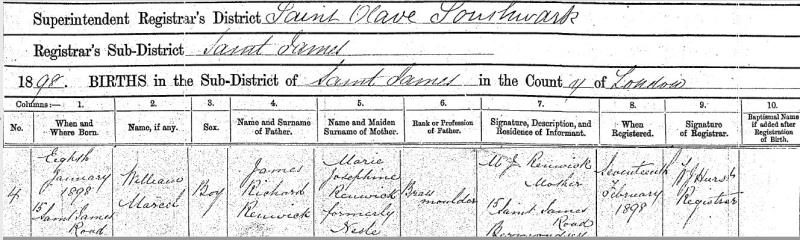 Superintendent Registrar's District Saint Olave Southwark
Registrar's Sub-District Saint James
1898. BIRTHS in the Sub-District of Saint James in the County of London
Columns:— 1. 2. 3. 4. 5. 6. 7. 8. 9. 10.
No. When and Where Born. Name, if any. Sex. Name and Surname of Father. Name and Maiden Surname of Mother. Rank or Profession of Father. Signature, Description, and Residence of Informant. When Registered. Signature of Registrar. Baptismal Name if added after Registration of Birth.
4
Eighth
January
1898
15 Saint James
Road
William
Marcel
Boy
James
Richard
Renwick
Marie
Josephine
Renwick
formerly
Nesle
Brass
moulder
M J Renwick
Mother
15
Saint James
Road
Bermondsey
Seventeenth
February
1898
Hurst
Registrar